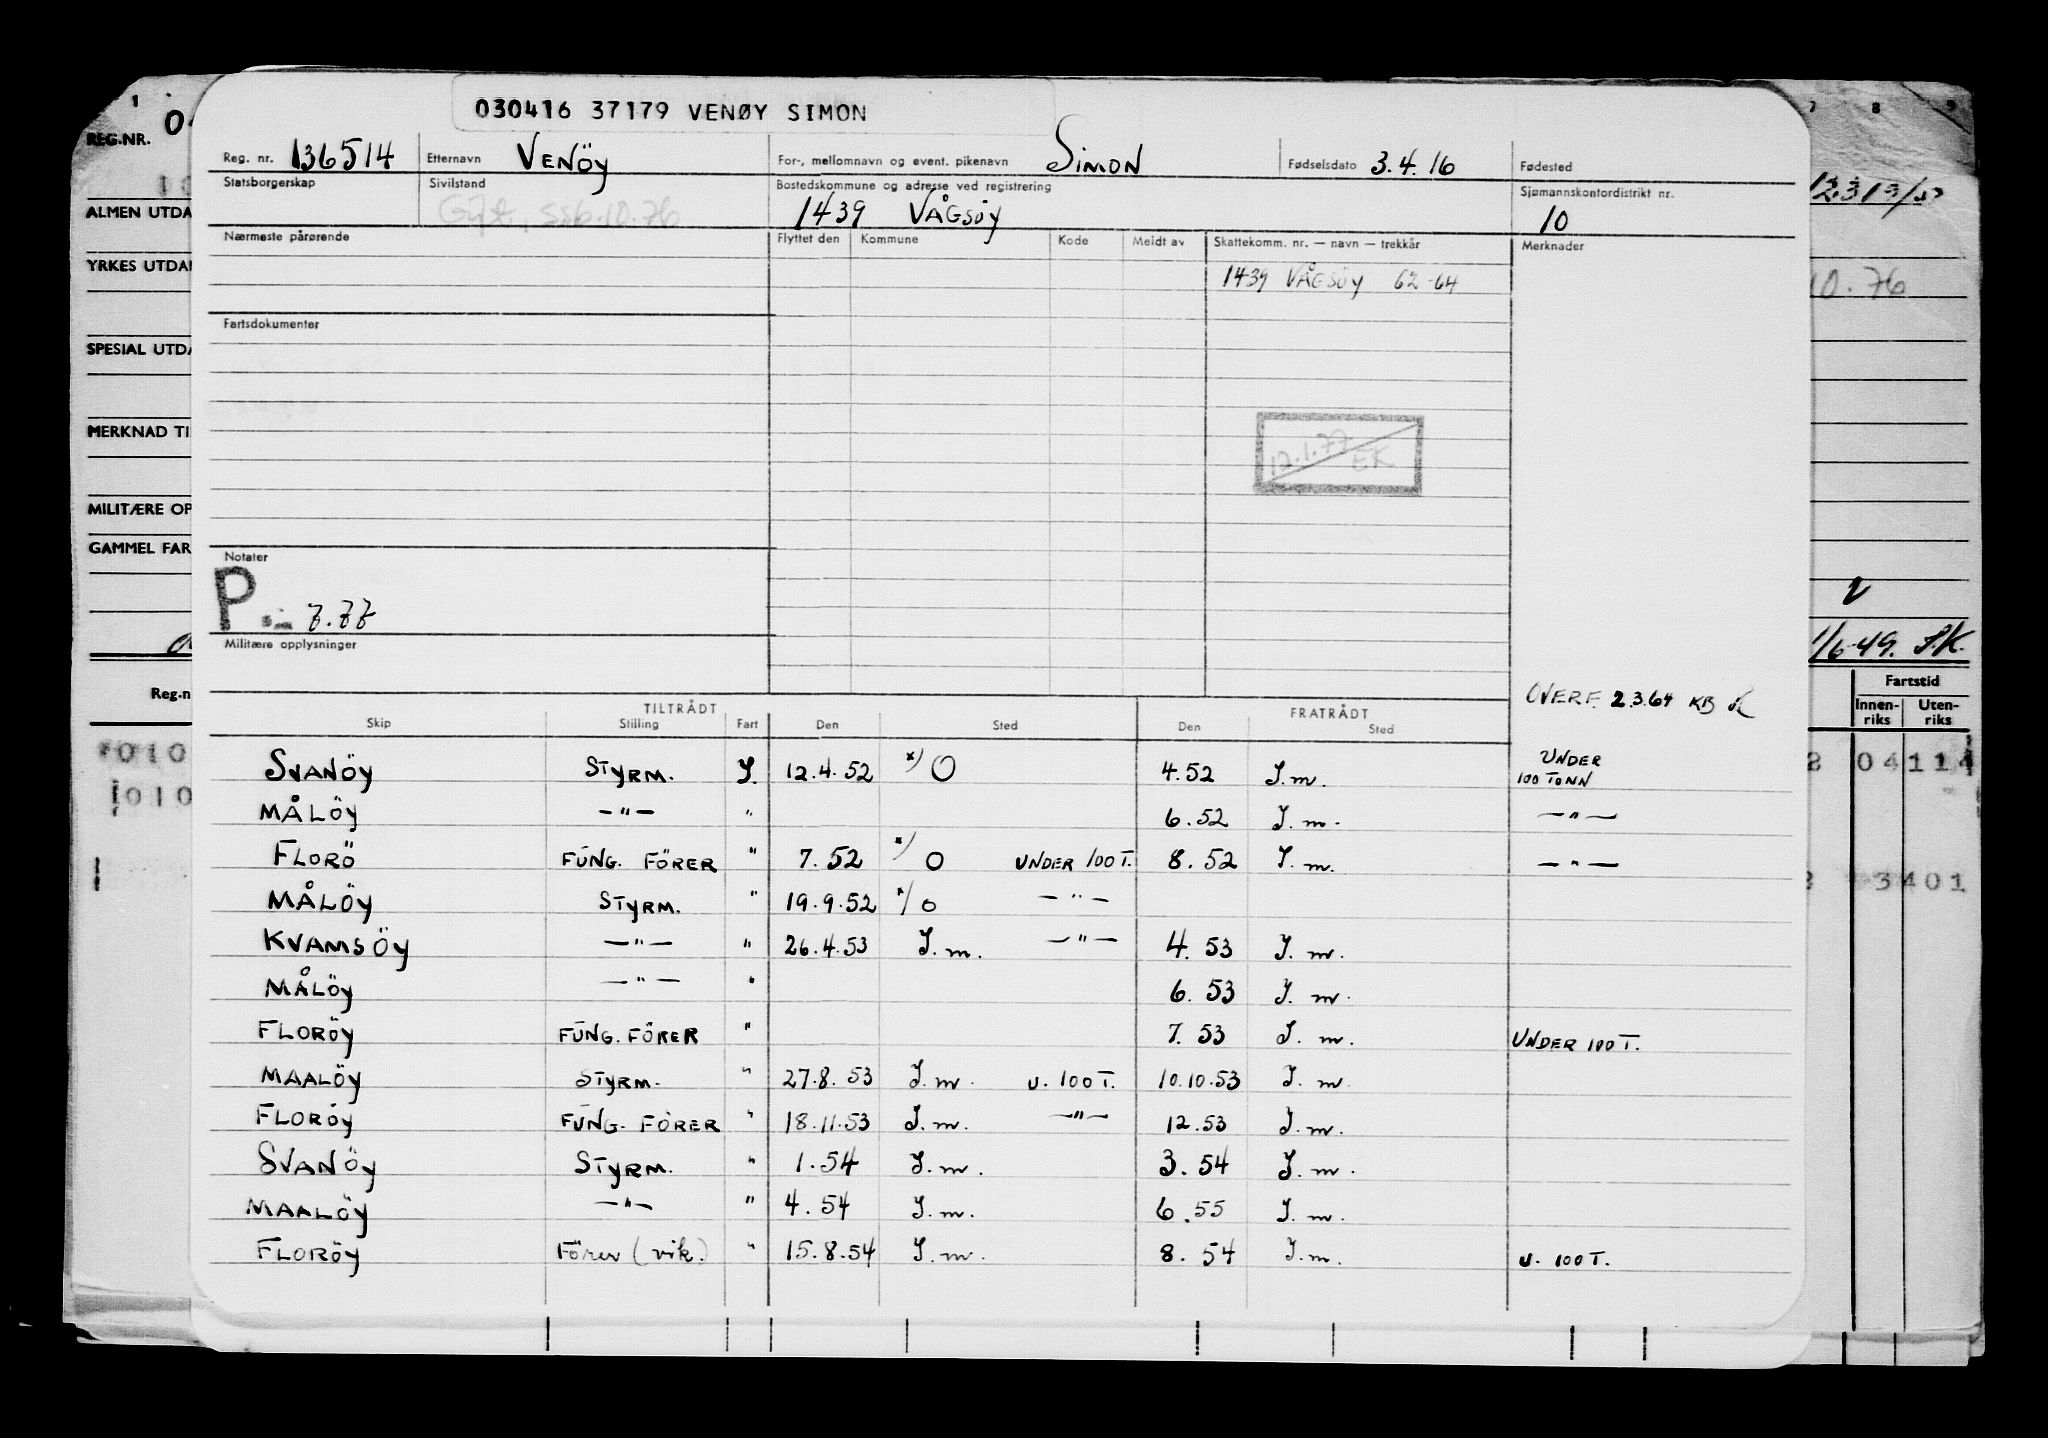 030416 37179 VENØY SIMON
1 7 8 9
REG.NR.
Reg. nr. 136514 Etternavn VENÖY For-, mellomnavn og event. pikenavn SIMON Fødselsdato 3.4.16 Fødested
Statsborgerskap Sivilstand Gift, ssb.10.76 Bostedskommune og adresse ved registrering 1439 VÅGSÖY Sjømannskontordistrikt nr. 10
ALMEN UTDA
Nærmeste pårørende Flyttet den Kommune Kode Meldt av Skattekomm. nr. — navn — trekkår Merknader
YRKES UTDA
1439 VÅGSÖY 62-64
10.76
Fartsdokumenter
SPESIAL UTDA
MERKNAD TI
12.1.77 EK
MILITÆRE OP
GAMMEL FAR
Notater
P 7.77
Militære opplysninger
1/6-49. S.K.
Reg.n
OVERF. 2.3.64 KB
Fartstid
Innen-riks Uten-riks
TILTRÅDT FRATRÅDT
Skip Stilling Fart Den Sted Den Sted
SVANÖY STYRM. I. 12.4.52 x) O 4.52 I.m. UNDER 100 TONN
010
2 04 114
MÅLÖY —"— " 6.52 I.m. —"—
010
FLORÖ FUNG. FÖRER " 7.52 x) O UNDER 100 T. 8.52 I.m. —"—
3401
MÅLÖY STYRM. " 19.9.52 x) o —"—
KVAMSÖY —"— " 26.4.53 I.m. —"— 4.53 I.m.
MÅLÖY —"— " 6.53 I.m.
FLORÖY FUNG. FÖRER " 7.53 I.m. UNDER 100 T.
MAALÖY STYRM. " 27.8.53 I.m. U. 100 T. 10.10.53 I.m.
FLORÖY FUNG. FÖRER " 18.11.53 I.m. —"— 12.53 I.m.
SVANÖY STYRM. " 1.54 I.m. 3.54 I.m.
MAALÖY —"— " 4.54 I.m. 6.55 I.m.
FLORÖY Förer (vik.) " 15.8.54 I.m. 8.54 I.m. U. 100 T.